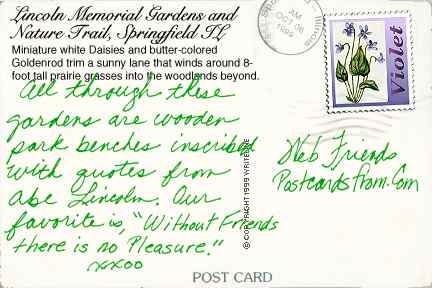 Lincoln Memorial Gardens and
Nature Trail, Springfield IL
Miniature white Daisies and butter-colored
Goldenrod trim a sunny lane that winds around 8-
foot tall prairie grasses into the woodlands beyond.
All through these
gardens are wooden
park benches inscribed
with quotes from
Abe Lincoln. Our
favorite is, "Without Friends
there is no Pleasure."
xxoo
AM
OCT 06
1999
Illinois
Violet
Web Friends
Postcardsfrom.Com
POST CARD